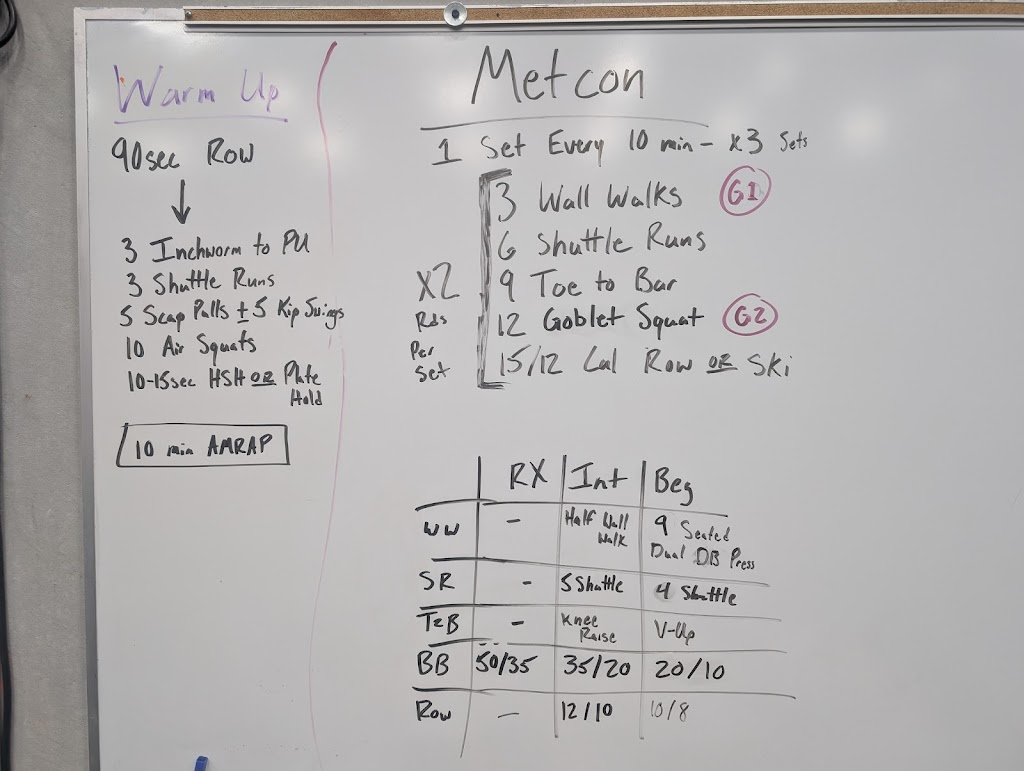 Warm Up
90sec Row
↓
3 Inchworm to PU
3 Shuttle Runs
5 Scap Pulls ± 5 Kip Swings
10 Air Squats
10-15sec HSH OR Plate
Hold
10 min AMRAP
Metcon
1 Set Every 10 min - x3 Sets
X2
Rds
Per
Set
3 Wall Walks G1
6 Shuttle Runs
9 Toe to Bar
12 Goblet Squat G2
15/12 Cal Row OR Ski
RX Int Beg
WW - Half Wall Walk 9 Seated Dual DB Press
SR - 5 Shuttle 4 Shuttle
T2B - Knee Raise V-Up
BB 50/35 35/20 20/10
Row - 12/10 10/8